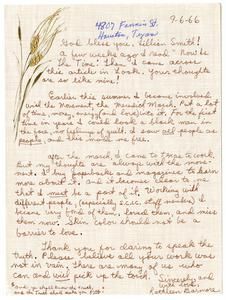 4807 Fannin St.
Houston, Texas
9-6-66
God bless you, Lillian Smith!
a few weeks ago I read "Now Is
the Time". Then I came across
this article in Look. Your thoughts
are so like mine!
Earlier this summer I became involved
with the Movement, the March. Put a lot
of time, money, energy and love into it. For the first
time in years I could look a black man in
the face, no feelings of guilt. I saw all people as
people, and this made me free.
After the march, I came to Texas to work,
but my thoughts are always with the move-
ment. I buy paperbacks and magazines to learn
more about it. And it becomes clear to me
that I must be a part of it. Working with
different people, (especially S.C.L.C. staff members) I
became very fond of them, loved them, and miss
them now. Skin color should not be a
barrier to love.
Thank you for daring to speak the
truth. Please believe all your work was
not in vain. There are many of us who
can and will pick up the torch.
Sincerely, and
with love,
Kathleen
"And ye shall know the truth,
and the Truth shall make you free."